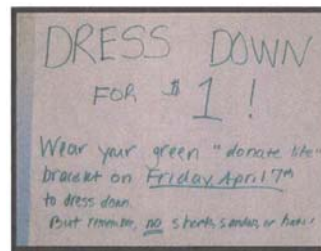 DRESS DOWN
FOR $1!
Wear your green "donate life"
bracelet on Friday April 7th
to dress down.
But remember, no shorts, sandals, or hats!